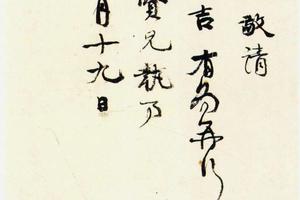 敬请
吉 有为再行
贤兄执事
月十九日